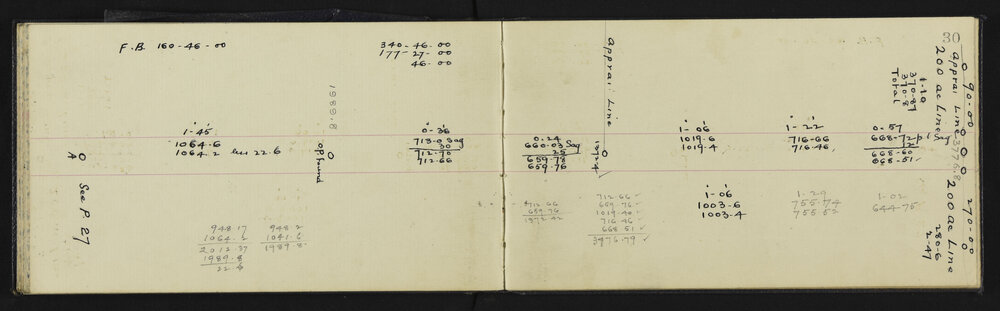 F.B. 160-46-00
340-46-00
177-27-00
46-00
1989.8
1-45
1064.6
1064.2 less 22.6
OP found
A
See P 27
0-36
713-03 sag
30
712.70
712.66
948.17
1064.2
2012.37
1989.8
22.6
948.2
1041.6
1989.8
30
Apprai. Line
1372.4
0.24
660.03 Sag
25
659.78
659.76
712.66
659.76
1372.42
712.66
659.76
1019.40
716.46
668.51
3776.79
1-06
1019.6
1019.4
1-06
1003-6
1003-4
1-22
716-66
716.46
1-29
755.74
755.52
0-57
668-72 Sag
12
668-60
668-51
1-02
644-75
1-10
370-87
370-8
Total
200 ac Line
Apprai Line 3776.8
90-00
270-00
200 ac Line
280-6
2-47